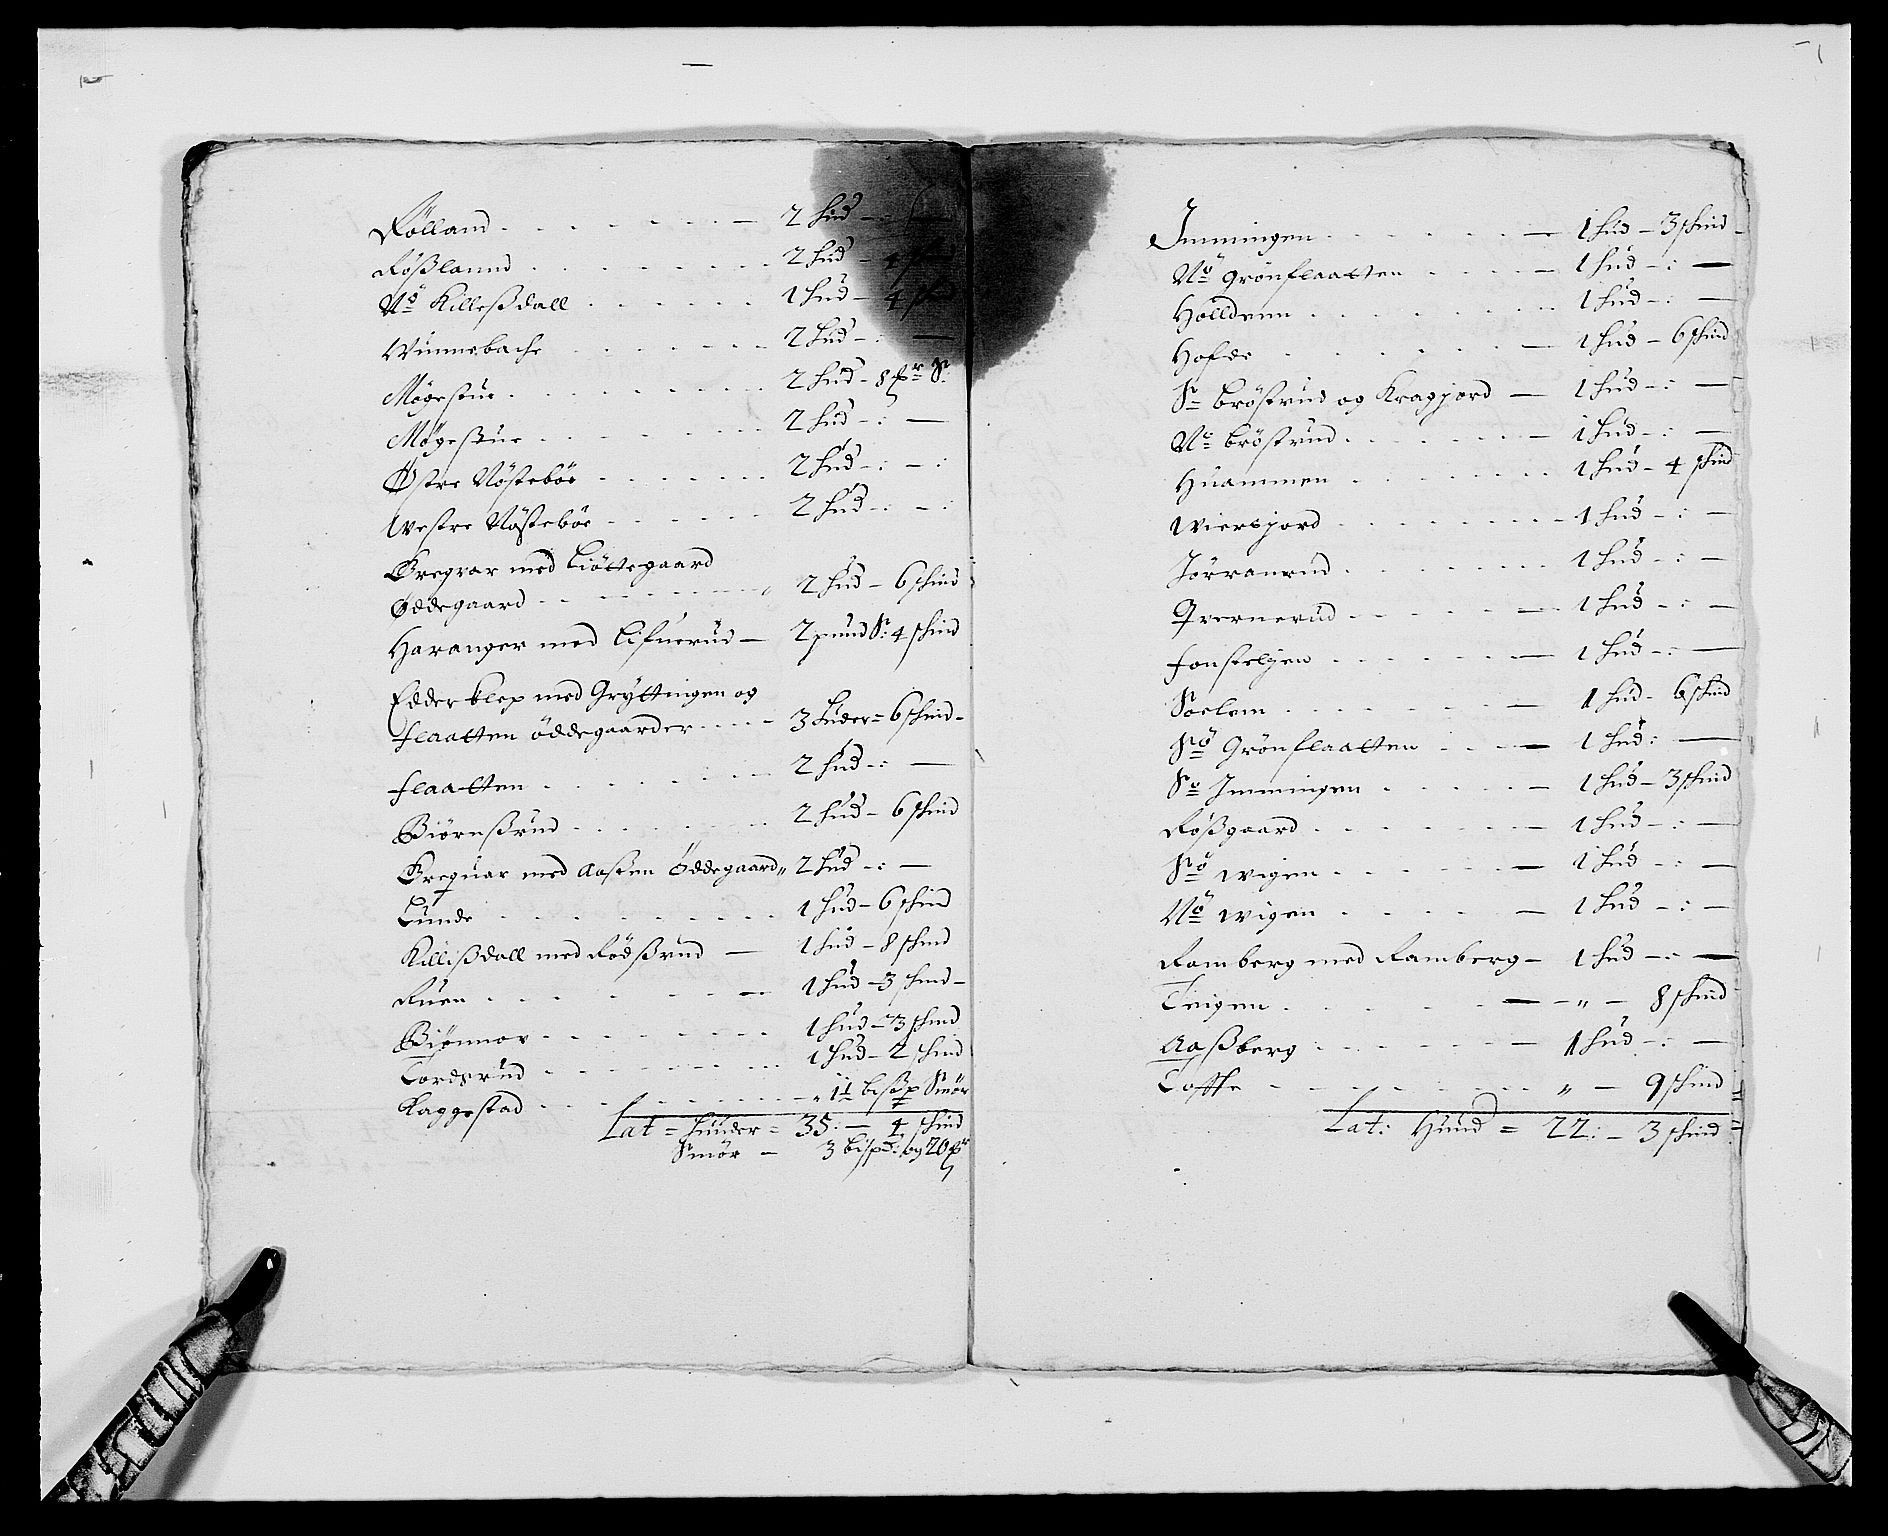 Rølland . . . . . . . — 2 hud - :
Røßlannd . . . . . . . 2 hud - 4
Nö Killeßdall . . . . . . 1 hud - 4
Winnebache . . . . . . . 2 hud - : —
Mögestue . . . . . . . 2 hud - 8
Mögestue . . . . . . . 2 hud - : —
Østre Nöstebøe . . . . . . 2 hud - : - :
Westre Nöstebøe . . . . . . 2 hud - : - :
Gregrar med Liöttegaard
Øddegaard . . . . . . . 2 hud - 6 skind
Haranger med Lifuerud — 2 pund Sr: 4 skind
Edderklep med Gryttingen og
flaatten öddegaarder . . . . 3 huder = 6 skind -
flaatten . . . . . . . 2 hud - : —
Biörnßrud . . . . . . . 2 hud - 6 skind
Greguar med Aasten Öddegaard „ 2 hud - : —
Lunde . . . . . . . . 1 hud - 6 skind
Killißdall med Rödßrud — 1 hud - 8 skind
Ruen . . . . . . . — 1 hud - 3 skind -
Biönnov . . . . . . . 1 hud - 3 skind
Tordsrud . . . . . . . 1 hud - 2 skind
Kaggestad . . . . . . . „ 1 1 bißp Smör
Lat = huuder = 35 : — 4 skind
Smör — 3 bispd: og 20 pr

Immingen . . . . . . — 1 hud - 3 skind -
Nö Grönflaatten . . . . — 1 hud - : —
Holldenn . . . . . . . 1 hud - : —
Hofde . . . . . . — 1 hud - 6 skind
Sr bröstrud og Kragjord — 1 hud - : —
No bröstrud . . . . . — 1 hud - : —
Huammen . . . . . . . 1 hud - 4 skind
Wiersjord . . . . . . . 1 hud - : —
Jörranrud . . . . . . . 1 hud - : —
Qvernerud . . . . . — 1 hud - : —
fonstelyen . . . . . — 1 hud - : —
Soelem . . . . . . . — 1 hud - 6 skind
Sö Grönflaatten . . . — 1 hud : —
So Immingen . . . . . — 1 hud - 3 skind
Rößgaard . . . . . . — 1 hud - : —
Sö wigen . . . . . . — 1 hud - : —
Nö wigen . . . . . — 1 hud - : —
Ramberg med Ramberg — 1 hud - : —
Teigen . . . . . — - „ - 8 skind
Aaßberg . . . . . . — 1 hud - : —
Toffte - . . . . . . . „ — 9 skind
Lat: Huud = 22 : - 3 skind